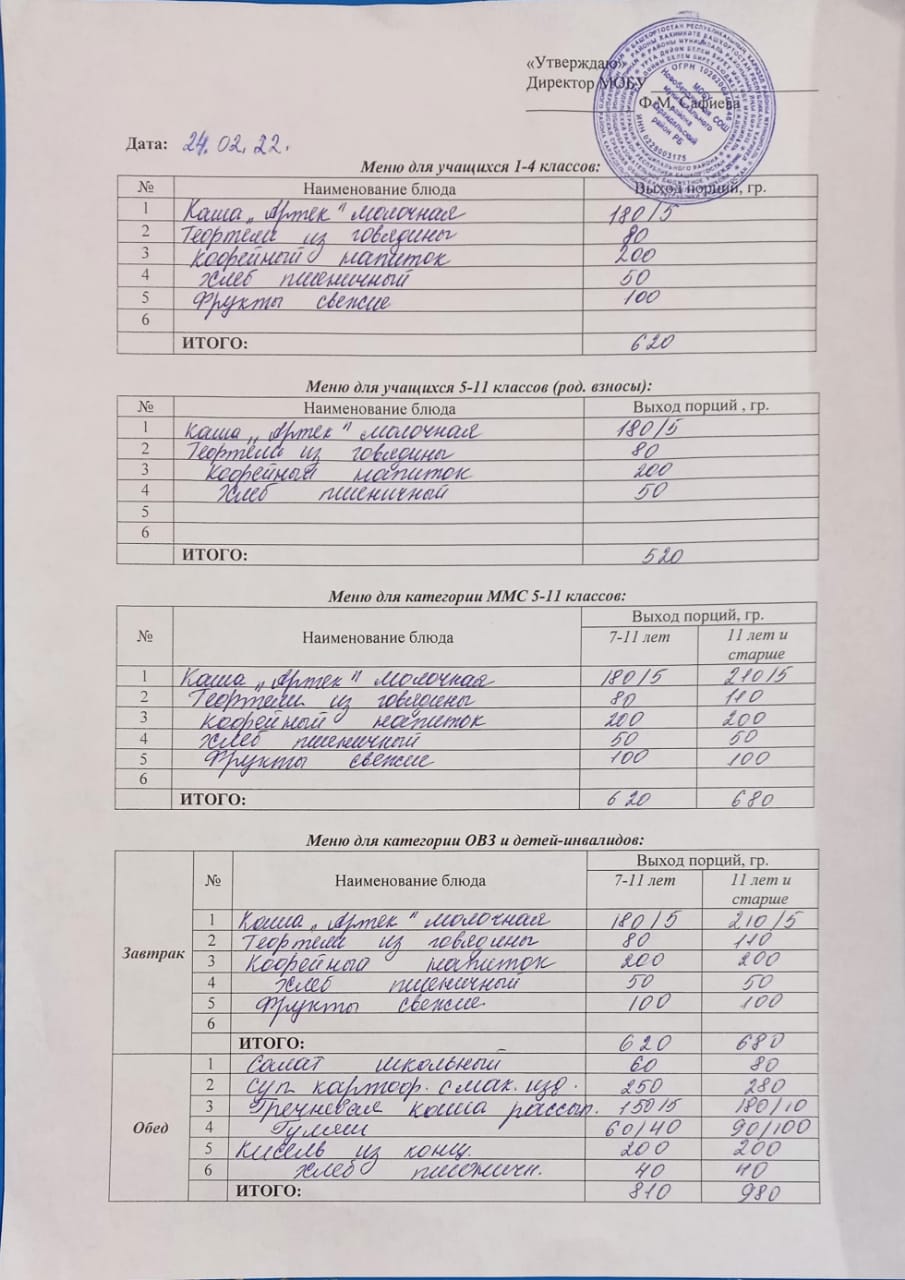 «Утверждаю»
Директор МОБУ
Ф.М. Сафиева
Дата: 24.02.22.
Меню для учащихся 1-4 классов:
№ Наименование блюда Выход порций, гр.
1 Каша „Артек" молочная 180/5
2 Теортели из говядины 80
3 Кофейный напиток 200
4 Хлеб пшеничный 50
5 Фрукты свежие 100
6
ИТОГО: 620
Меню для учащихся 5-11 классов (род. взносы):
№ Наименование блюда Выход порций , гр.
1 Каша „Артек" молочная 180/5
2 Теортели из говядины 80
3 Кофейный напиток 200
4 Хлеб пшеничный 50
5
6
ИТОГО: 520
Меню для категории ММС 5-11 классов:
№ Наименование блюда Выход порций, гр.
7-11 лет 11 лет и старше
1 Каша „Артек" молочная 180/5 210/5
2 Теортели из говядины 80 110
3 Кофейный напиток 200 200
4 Хлеб пшеничный 50 50
5 Фрукты свежие 100 100
6
ИТОГО: 620 680
Меню для категории ОВЗ и детей-инвалидов:
№ Наименование блюда Выход порций, гр.
7-11 лет 11 лет и старше
Завтрак
1 Каша „Артек" молочная 180/5 210/5
2 Теортели из говядины 80 110
3 Кофейный напиток 200 200
4 Хлеб пшеничный 50 50
5 Фрукты свежие 100 100
6
ИТОГО: 620 680
Обед
1 Салат школьный 60 80
2 Суп картоф. с мак. изд. 250 280
3 Гречневая каша рассып. 150/5 180/10
4 Гуляш 60/40 90/100
5 Кисель из конц. 200 200
6 Хлеб пшеничн. 40 40
ИТОГО: 810 980